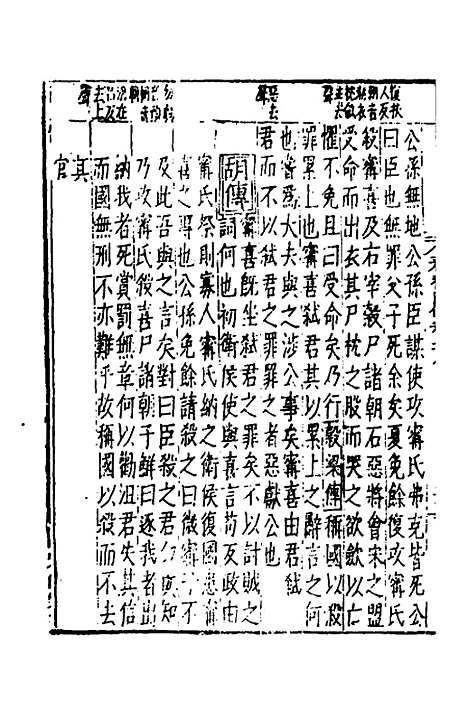 公孫無地公孫臣謀使攻甯氏弗克皆死公
曰臣也無罪父子死余矣夏免餘復攻甯氏
殺甯喜及右宰穀尸諸朝石惡將會宋之盟
受命而出衣其尸枕之股而哭之欲歛以亡
懼不免且曰受命矣乃行榖梁傳稱國以殺
罪累上也甯喜弑君其以累上之辭言之何
也嘗爲大夫與之涉公事矣甯喜由君弑
君而不以弑君之罪罪之者惡獻公也
惡去聲
胡傳甯喜旣坐弑君之罪矣不以討賊之
詞何也初衛侯使與喜言苟反政由
甯氏祭則寡人甯氏納之衛侯復國患甯
喜之專也公孫免餘請殺之曰微甯子不
及此吾與之言矣對曰臣殺之君勿與知
乃攻甯氏殺喜尸諸朝子鮮曰逐我者出
納我者死賞罰無章何以勸沮君失其信
而國無刑不亦難乎故稱國以殺而不去
其官